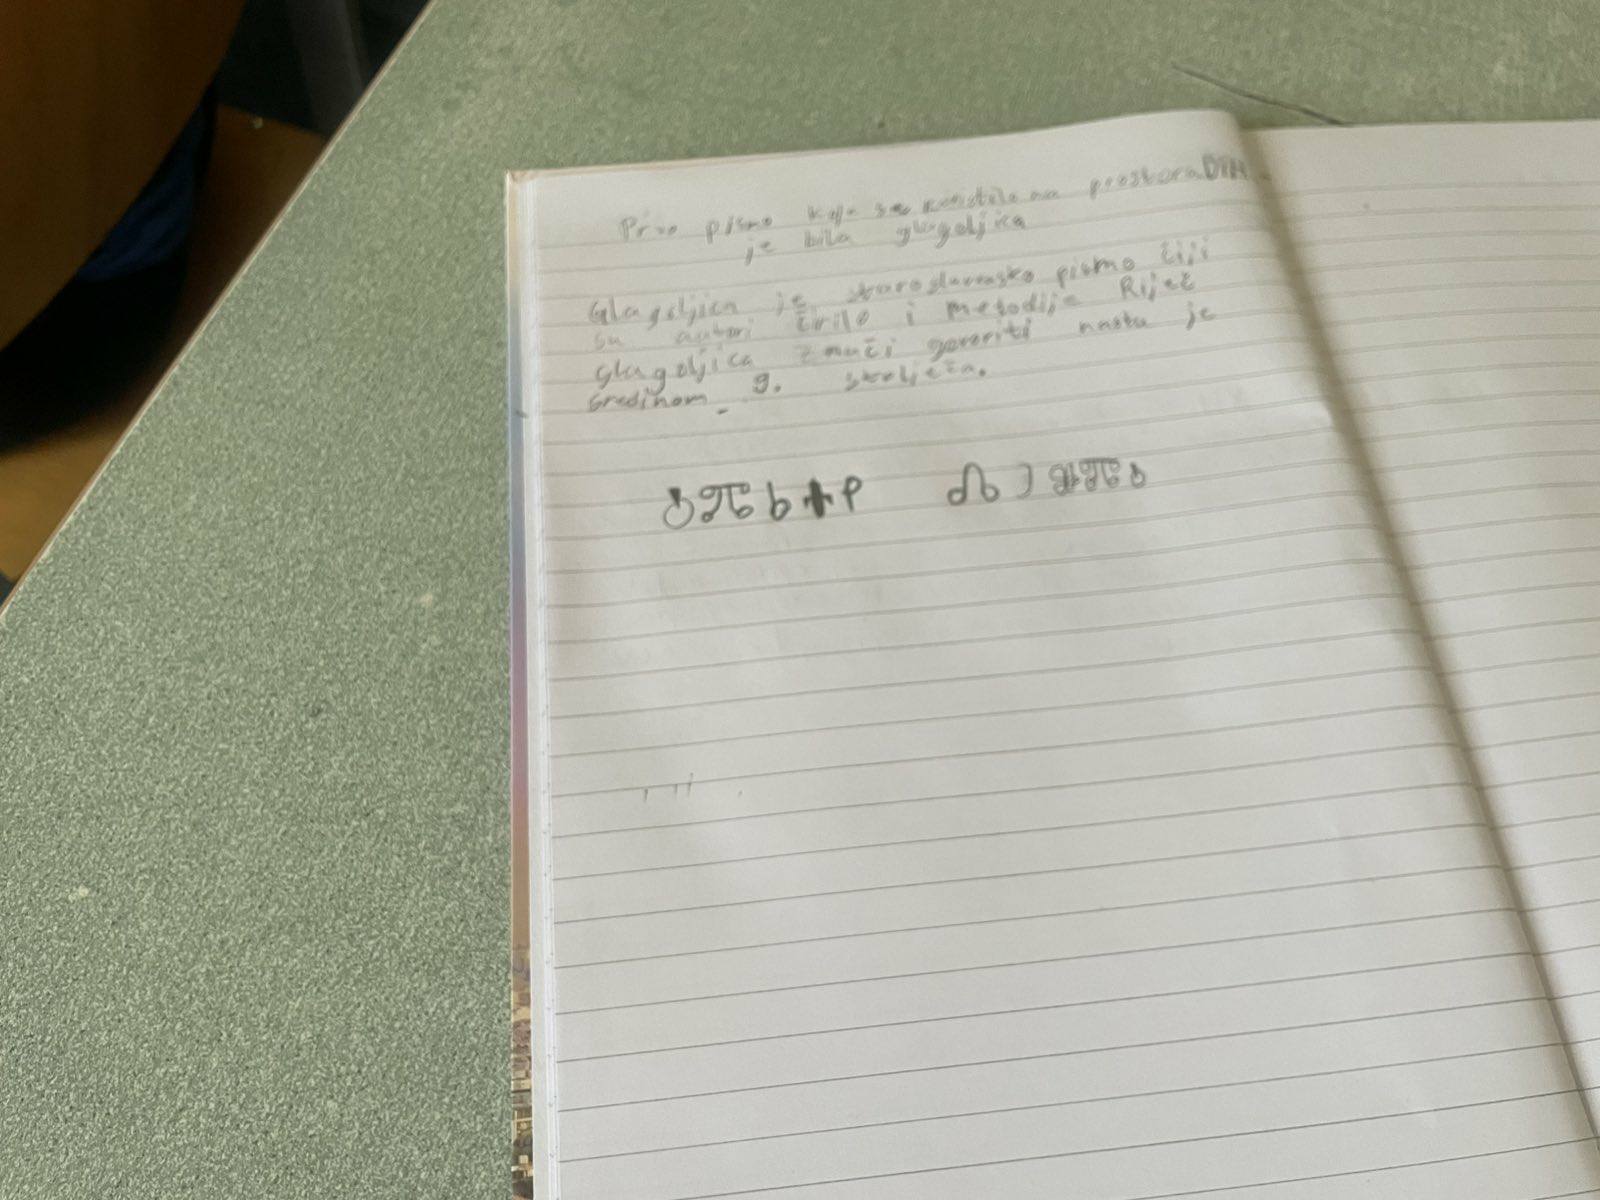 Prvo pismo koje se koristilo na prostora BIH
je bila glagoljica
Glagoljica je staroslavensko pismo čiji
su autori Ćirilo i Metodije Riječ
glagoljica znači govoriti nasta je
sredinom 9. stoljeća.